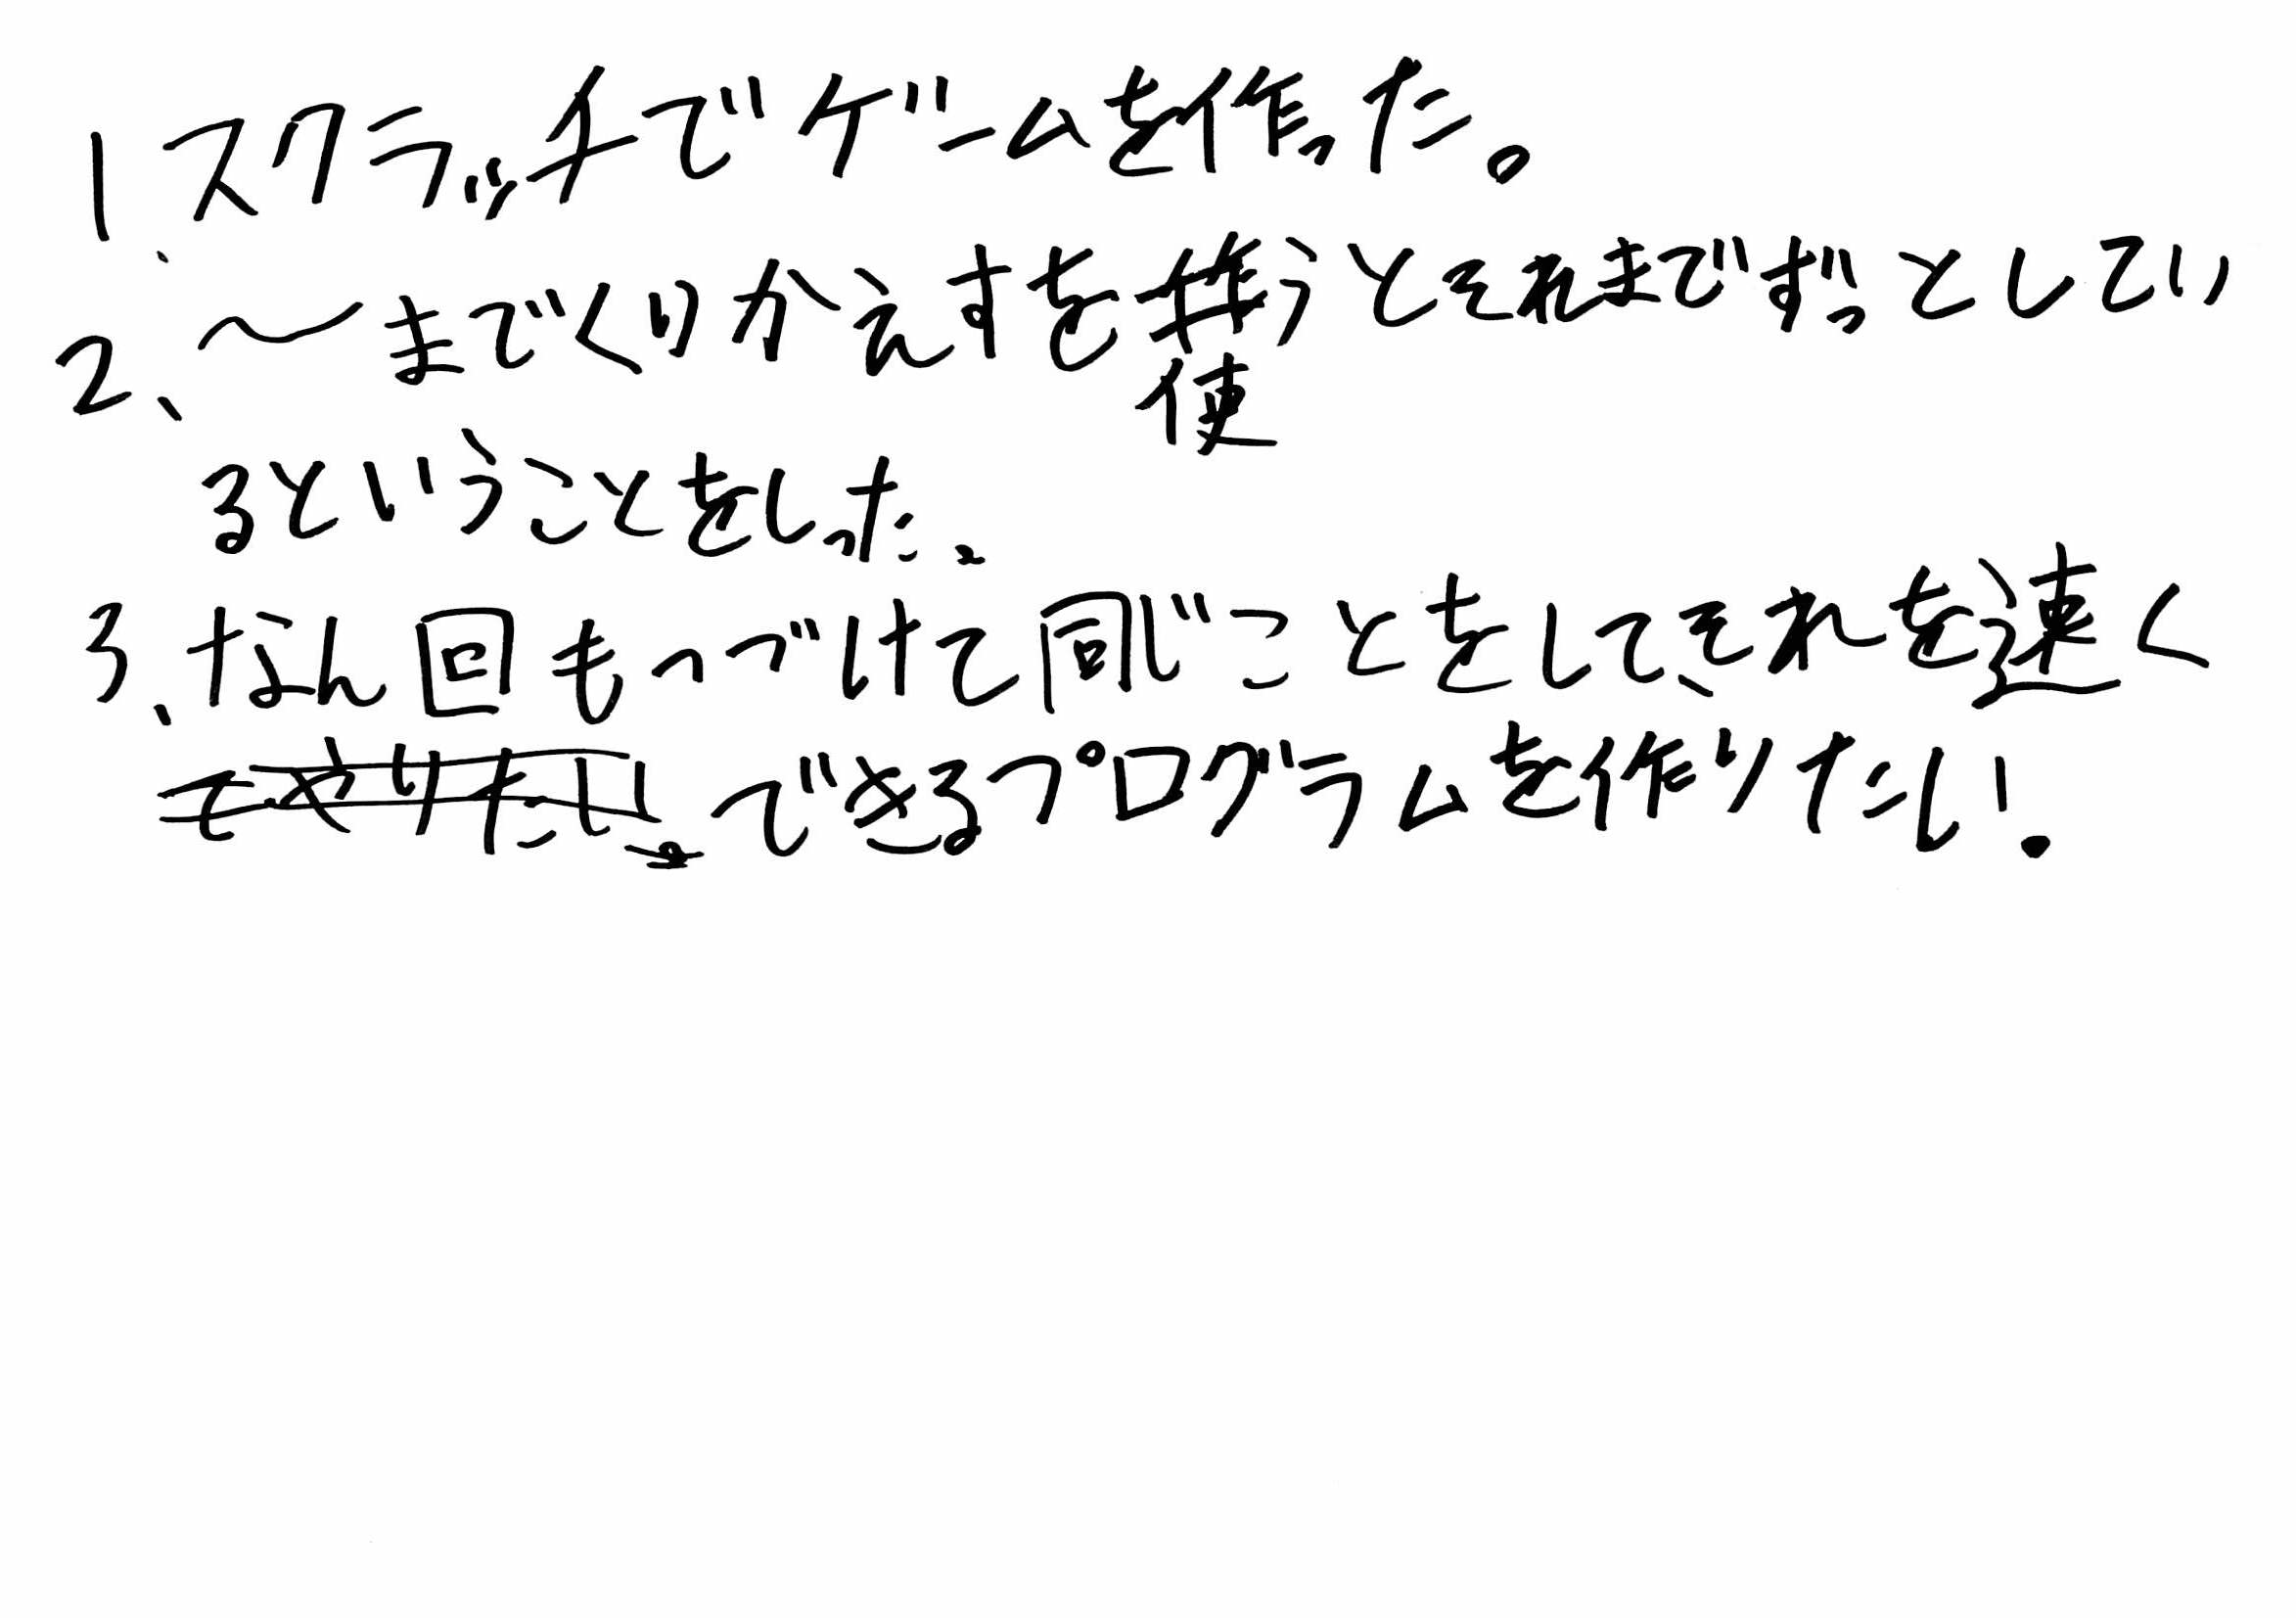 1、スクラッチでゲームを作った。
2、〜までくりかえすを使うとそれまでずっとしてい
るということをしった。
3、なん回もつづけて同じことをしてそれを速く
できるプログラムを作りたい!